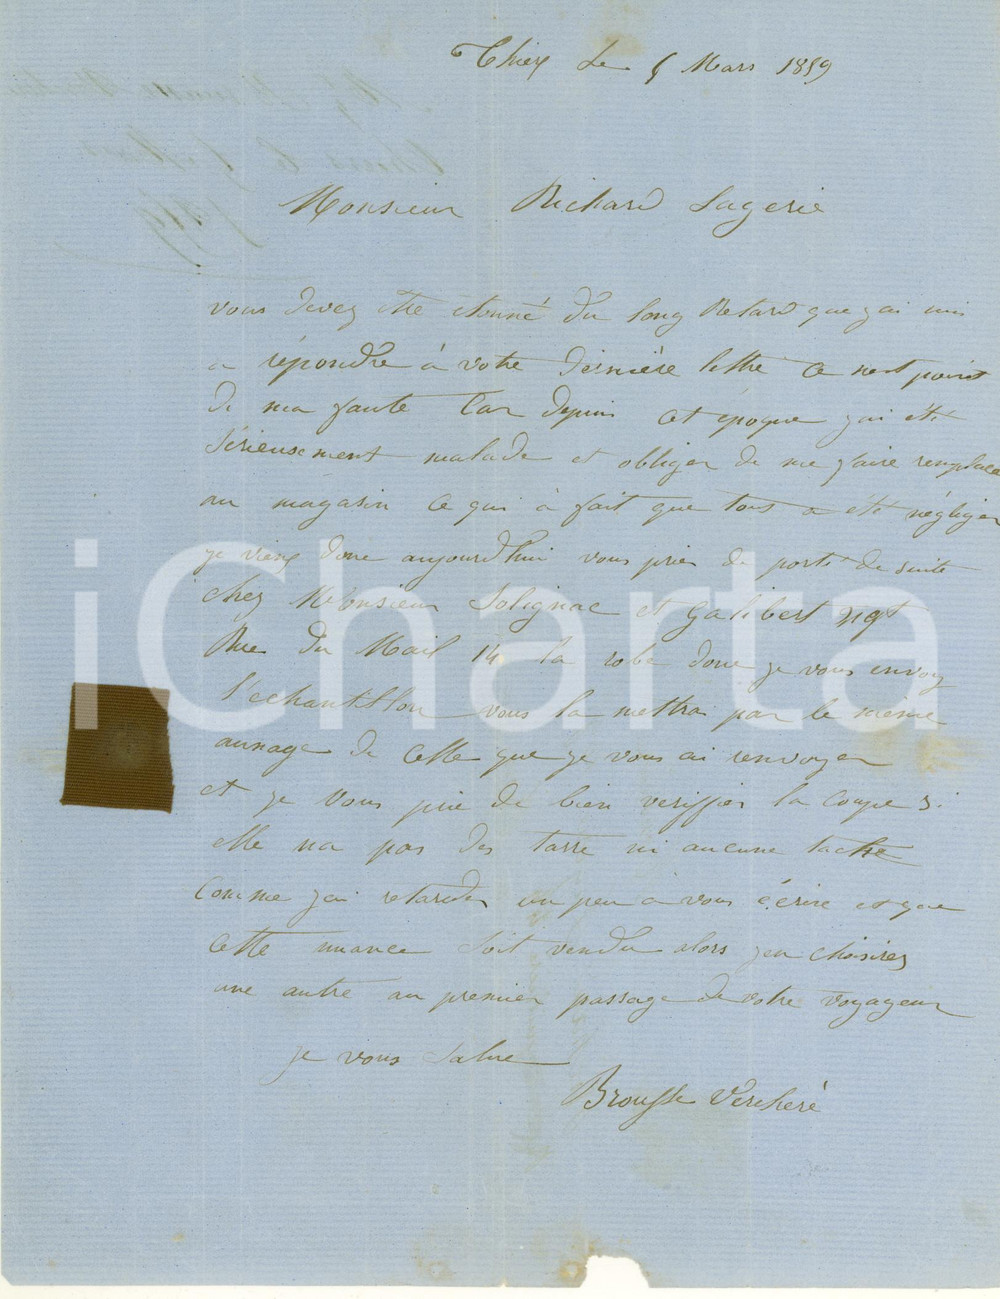 Thiers Le 5 Mars 1859
Monsieur Richard Lagerie
vous devez être étonné du long Retard que jai mis
a répondre à votre dernière lettre Ce nest point
de ma faute Car depuis cet époque jai été
sérieusement malade et obliger de me faire remplacer
au magasin Ce qui à fait que tout a été négliger
je viens donc aujourdhui vous prier de porté de suite
chez Monsieur Solignac et Galibert
Rue du Mail 14 la robe dont je vous envoy
l'echantillon vous la mettrai par le même
aunage de Celle que je vous ai renvoyer
et je vous prie de bien veriffier la Coupe si
elle na pas des tarre ni aucune tache
Comme jai retarder un peu à vous écrire et que
Cette nuance soit vendu alors jen choisirez
une autre au premier passage de votre voyageur
je vous salue
Brousse Vercheré
iCharta